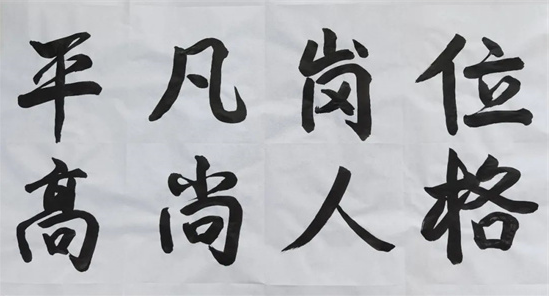 平凡岗位
高尚人格